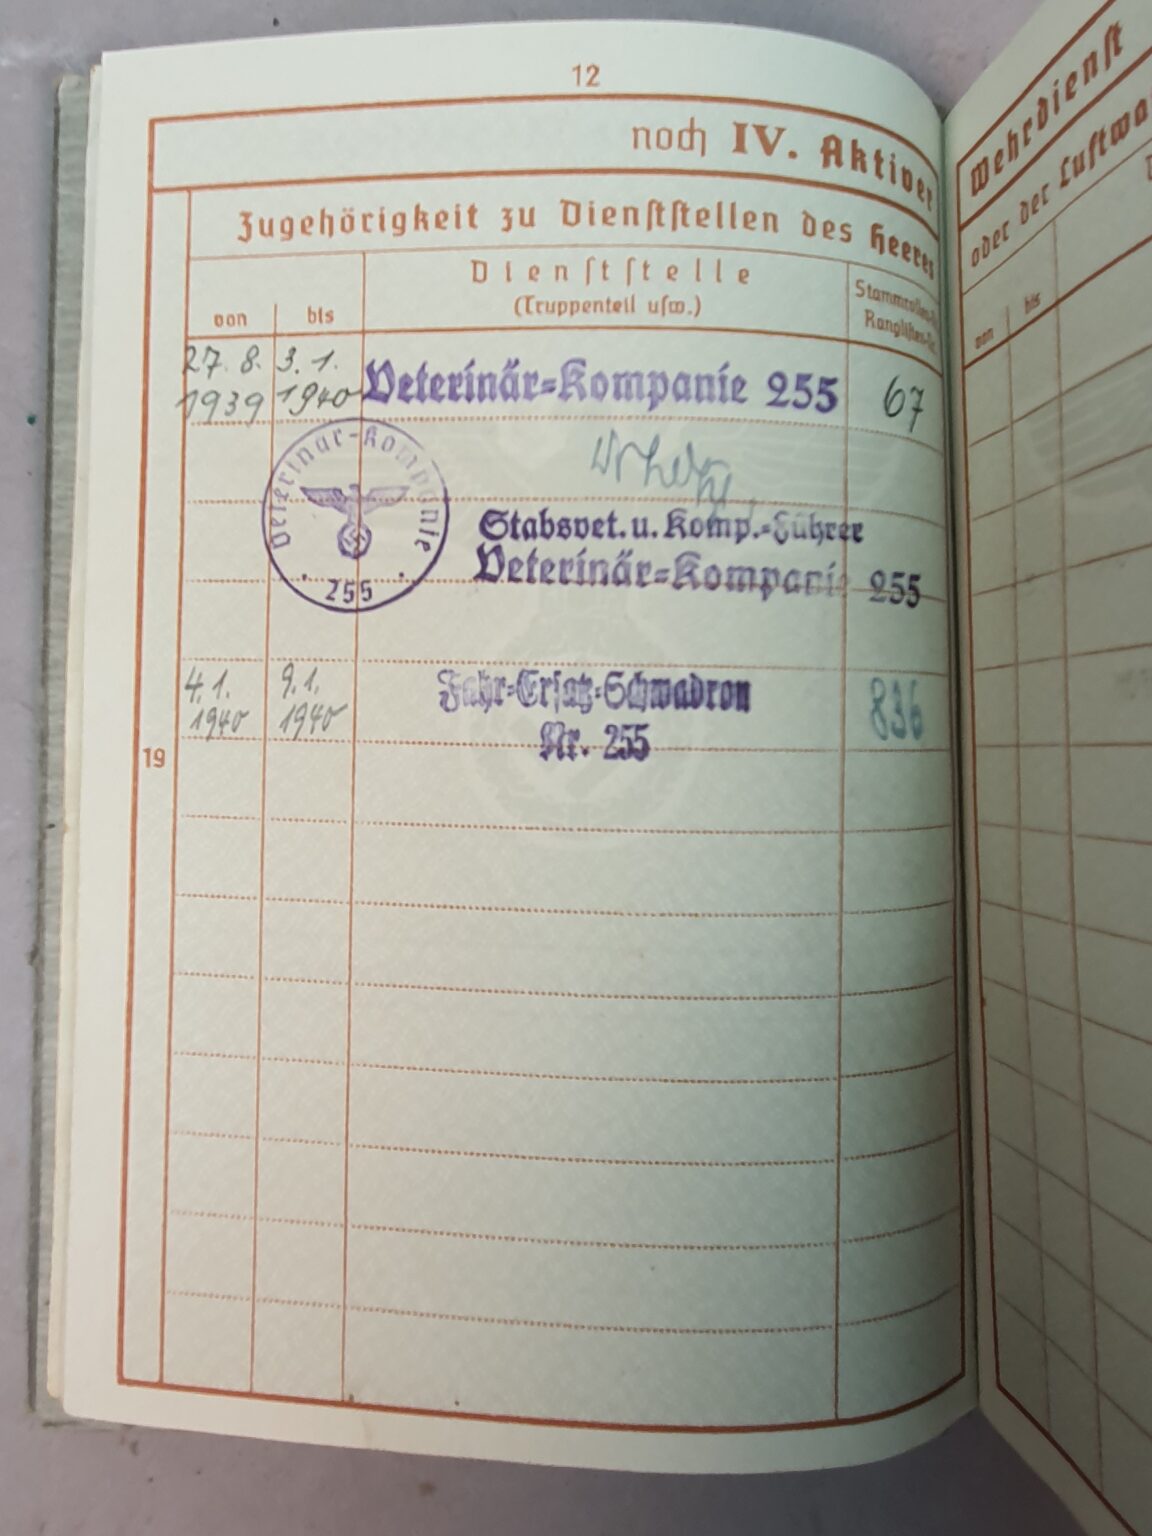 12
noch IV. Aktiver
Zugehörigkeit zu Dienststellen des Heeres
von
bis
Dienststelle
(Truppenteil usw.)
Stammrollen-Nr.
Ranglisten-Nr.
27. 8. 1939
3. 1. 1940
Veterinär-Kompanie 255
67
Veterinär-Kompanie
255
Stabsvet. u. Komp.-Führer
Veterinär-Kompanie 255
4. 1. 1940
9. 1. 1940
Fahr-Ersatz-Schwadron
Nr. 255
836
19
Wehrdienst
oder der
von
bis